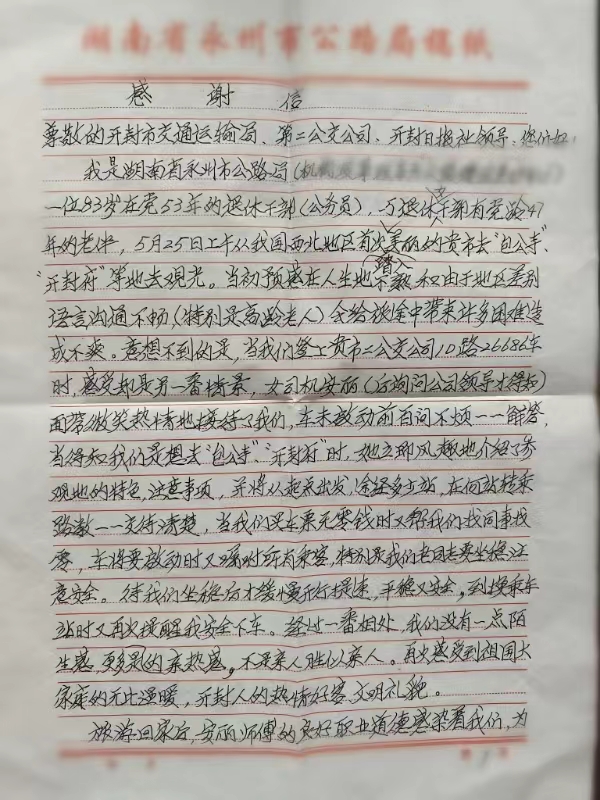 湖南省永州市公路局稿纸
感谢信
尊敬的开封市交通运输局、第二公交公司、开封日报社领导：您们好！
我是湖南省永州市公路局（
一位83岁在党53年的退休干部（公务员），与退休干部有党龄47
年的老伴，5月25日上午从我国西北地区首次美丽的贵市去“包公寺”
“开封府”等地去观光。当初预感在人生地不熟，和由于地区差别
语言沟通不畅，（特别是高龄老人）会给旅途中带来许多困难造
成不爽。意想不到的是，当我们登上贵市二公交公司10路26686车
时，感受却是另一番情景，女司机安丽（后询问公司领导才得知）
面带微笑热情地接待了我们，车未启动前百问不烦一一解答，
当得知我们是想去“包公寺”、“开封府”时，她立即风趣地介绍了参
观地的特色，注意事项，并将从起点出发，途经多少站，在何站转乘
路数一一交待清楚，当我们买车票无零钱时又帮我们找同事找
零，车将要启动时又嘱咐所有乘客，特别是我们老两老要坐稳注
意安全。待我们坐稳后才缓慢开行提速，平稳又安全，到换乘车
站时又再次提醒我安全下车。经过一番相处，我们没有一点陌
生感，更多是的亲热感，不是亲人胜似亲人。再次感受到祖国大
家庭的无比温暖，开封人的热情好客文明礼貌。
旅游回家后，安丽师傅的良好职业道德感染着我们，为